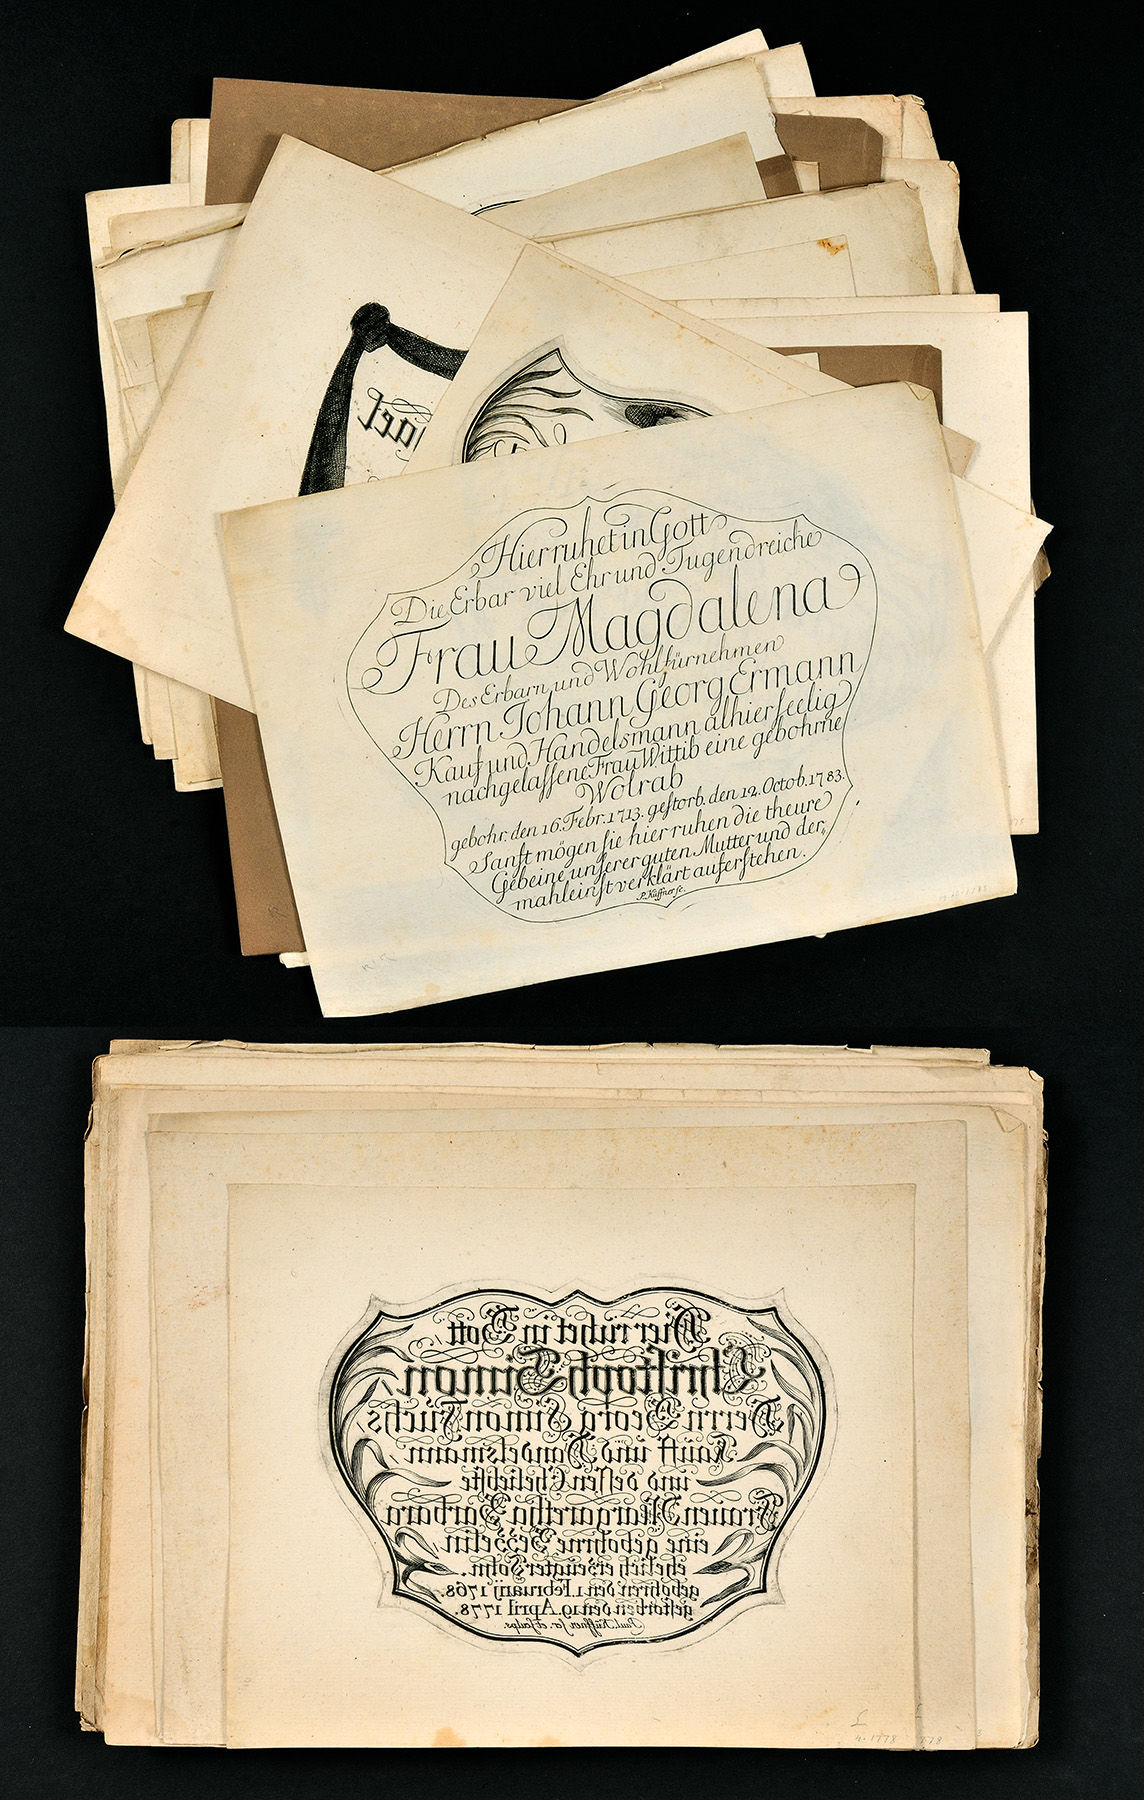 Hier ruhet in Gott
Die Erbar viel Ehr und Tugendreiche
Frau Magdalena
Des Erbarn und Wohlfürnehmen
Herrn Johann Georg Ermann
Kauf und Handelsmann alhier seelig
nachgelassene Frau Wittib eine gebohrne
Wolrab
gebohr. den 16. Febr. 1713. gestorb. den 12. Octob. 1783.
Sanft mögen sie hier ruhen die theure
Gebeine unserer guten Mutter und der,
mahleinst verklärt auferstehen.
P. Küffner sc.
Hier ruhet in Gott
Christoph Simon,
Herrn Georg Simon Fuchs
Kauff und Handelsmann,
und dessen Eheliebste
Frauen Margaretha Barbara
eine gebohrne Bezzelin,
ehelich erzeugter Sohn.
gebohren den 1. Februarij 1768.
gestorben den 19. April 1778.
Paul Küffner scr. et sculps.